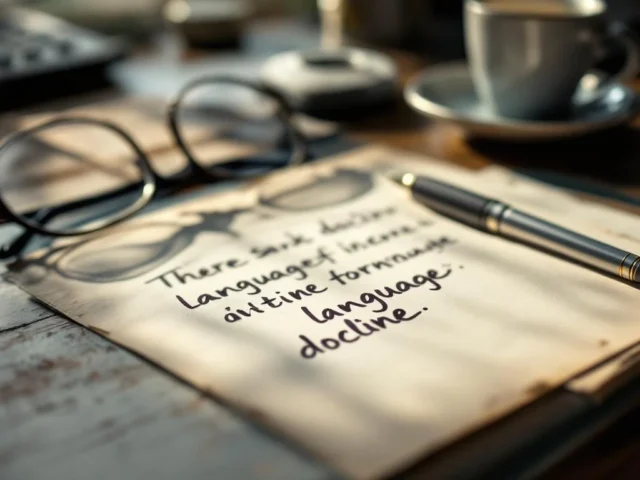 There sank docline
Languagef increra
aivtine tornmuate
language.
docline.